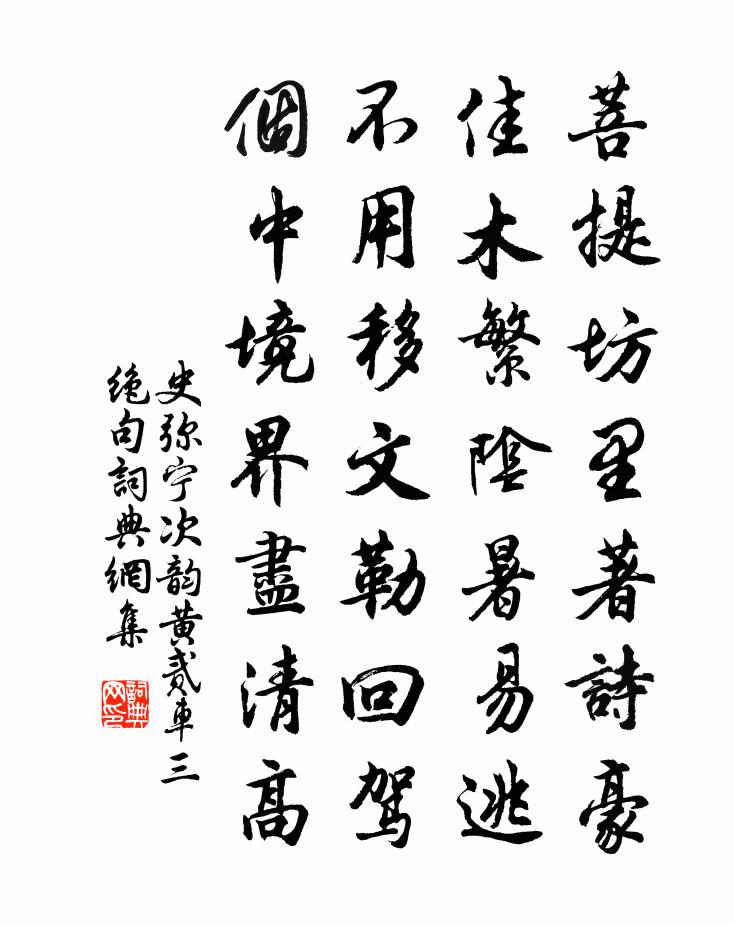 菩提坊里著詩豪
佳木繁陰暑易逃
不用移文勒回駕
個中境界盡清高
史弥宁次韵黄贰車三
绝句詞典網集
詞典
网印